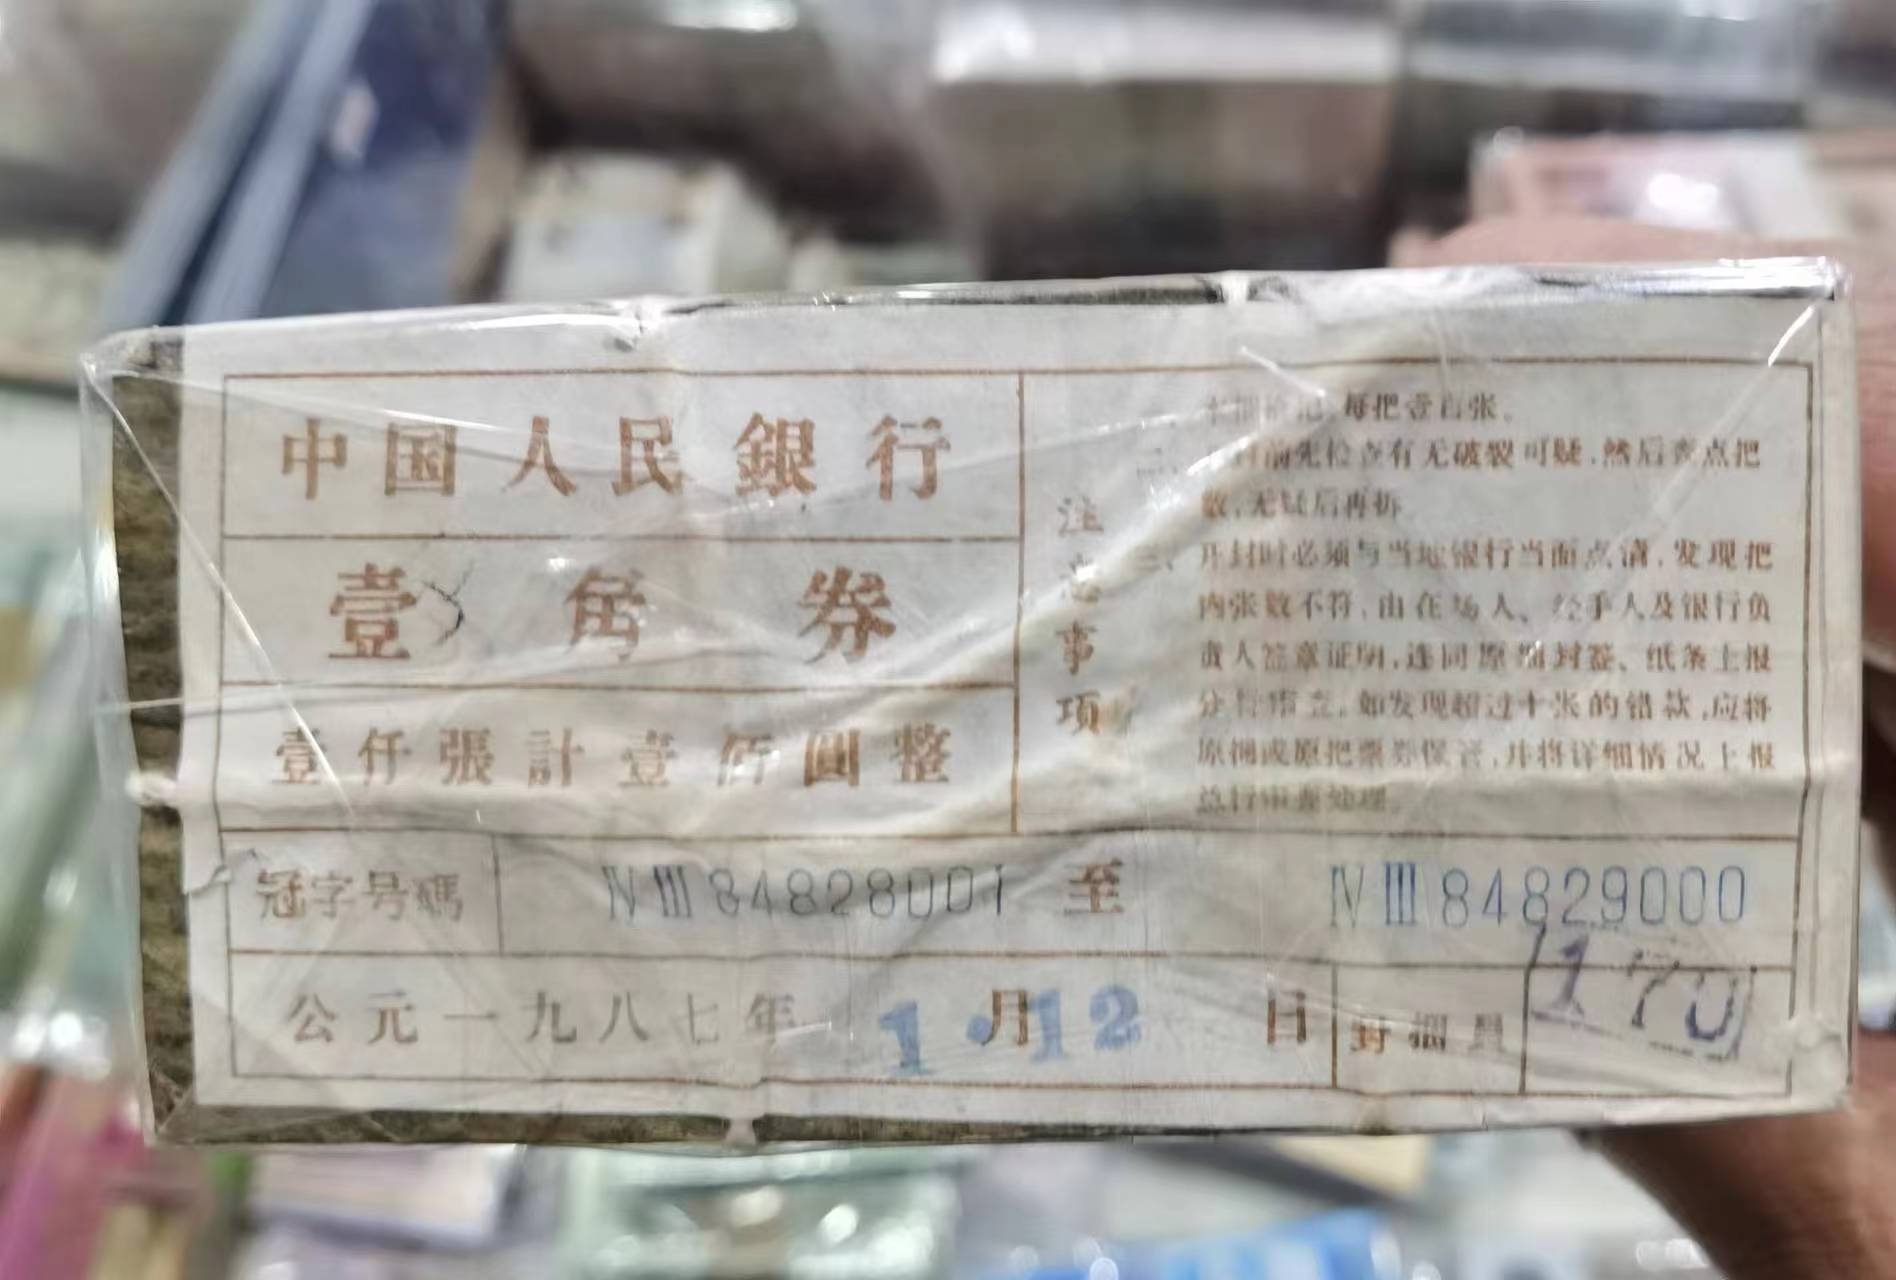 中国人民銀行
壹角券
壹仟張計壹佰圓整
注意事項
每把壹百张。
二、开封前先检查有无破裂可疑,然后查点把
数,无疑后再拆
三、开封时必须与当地银行当面点清,发现把
内张数不符,由在场人、经手人及银行负
责人签章证明,连同原捆封签、纸条上报
分行审查,如发现超过十张的错款,应将
原捆或原把票券保管,并将详细情况上报
总行审查处理。
冠字号碼 ⅣⅢ84828001 至 ⅣⅢ84829000
公元一九八七年 1·月12日 封捆員 170